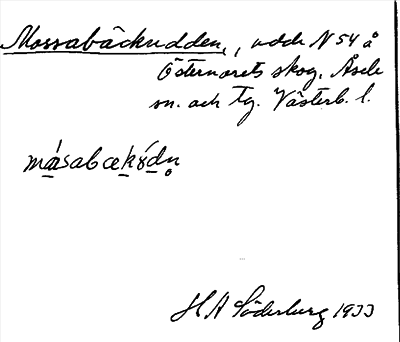 Mossabäckudden, udde N 54 å
Östernorets skog. Åsele
sn. och tg. Västerb. l.
másabækó̱dn̥
H A Söderburg 1933